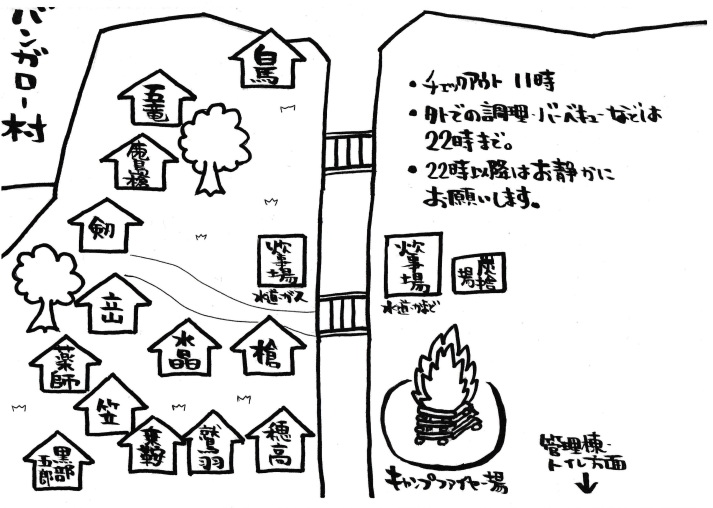 バンガロー村
白馬
五竜
鹿島槍
剱
立山
薬師
水晶
槍
笠
黒部
五郎
乗鞍
鷲羽
穂高
炊事場
水道・ガス
・チェックアウト 11時
・外での調理・バーベキューなどは
22時まで。
・22時以降はお静かに
お願いします。
炊事場
水道・かまど
炭捨場
キャンプファイヤー場
管理棟・
トイレ方面